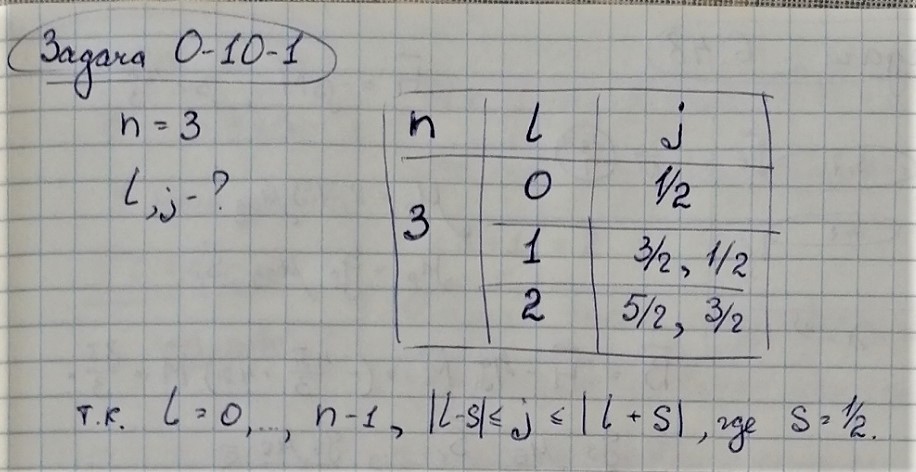 Задача 0-10-1
n = 3
l, j - ?
n l j
3
0 1/2
1 3/2, 1/2
2 5/2, 3/2
т.к. l = 0,..., n-1, |l-s| ≤ j ≤ |l + s|, где s = 1/2.